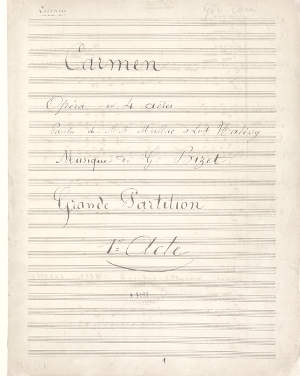 Carmen
Opéra en 4 actes
Paroles de M.M. Meilhac et Lud. Halévy
Musique de G. Bizet
Grande Partition
1er Acte
1